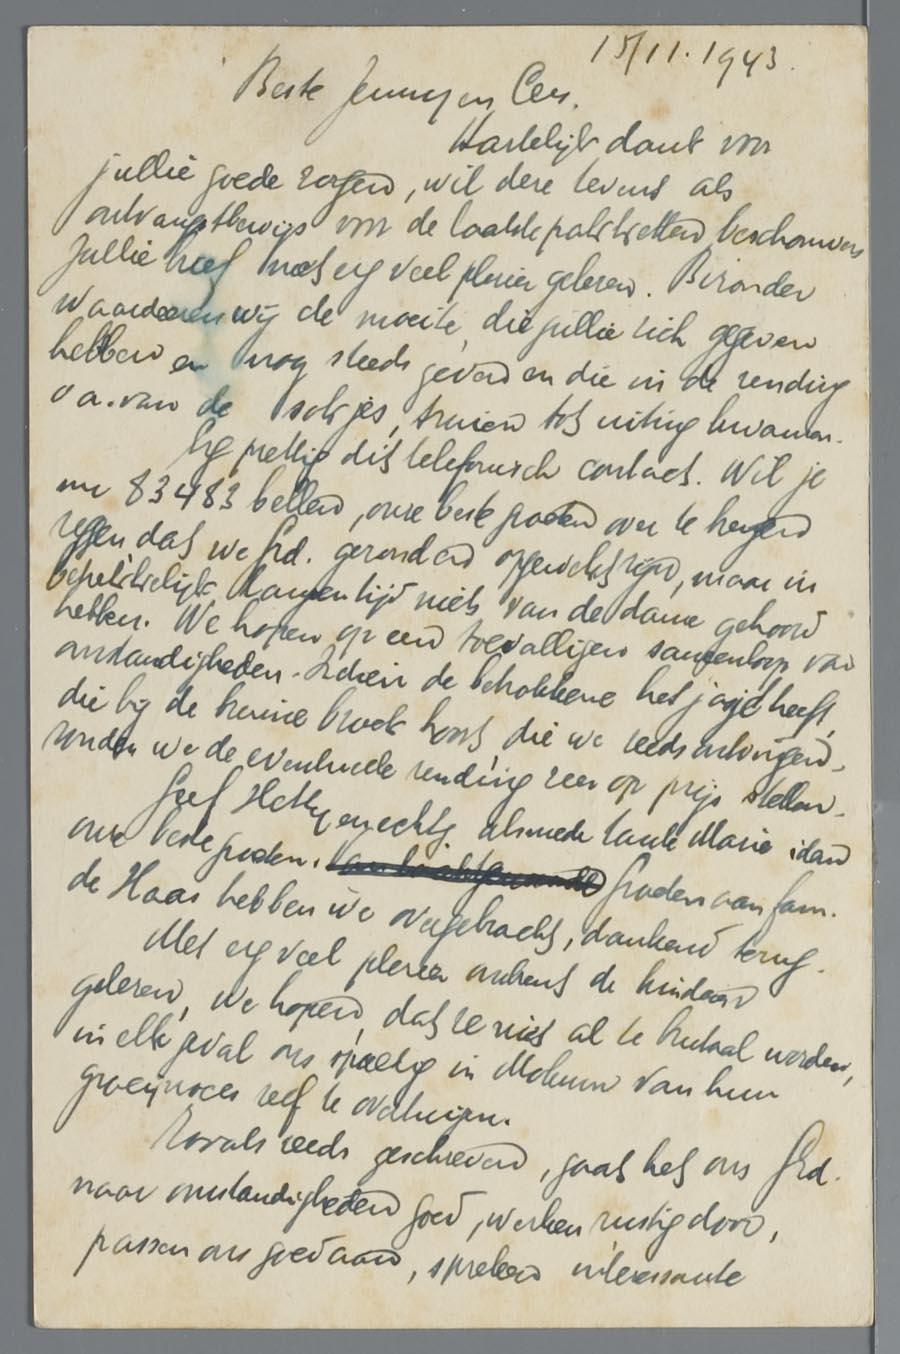 15/11. 1943.
Beste Jenny en Cees.
Hartelijk dank voor
jullie goede zorgen, wil deze tevens als
ontvangstbewijs voor de laatste pakketten beschouwen
Jullie brief met erg veel plezier gelezen. Bizonder
waardeeren wij de moeite, die jullie zich gegeven
hebben en nog steeds geven en die in de zending
o a. van de sokjes, truien tot uiting kwamen.
Erg prettig dit telefonisch contact. Wil je
nr 83483 bellen, onze beste groeten over te brengen
zeggen dat we Grd. gezond en opgewekt zijn, maar in
betrekkelijk langen tijd niets van de dame gehoord
hebben. We hopen op een toevalligen samenloop van
omstandigheden. Indien de betrokkene het jasje heeft,
die bij de bruine broek hoort die we reeds ontvingen,
zouden we de eventueele zending zeer op prijs stellen.
Geef Hetty en echtg. alsmede tante Marie idem
onze beste groeten. Groeten aan fam.
de Haas hebben we overgebracht, dankend terug.
Met erg veel plezier omtrent de kinderen
gelezen, we hopen, dat ze niet al te brutaal worden,
in elk geval ons spoedig in Mokum van hun
groeiproces zelf te overtuigen.
Zooals reeds geschreven, gaat het ons Grd.
naar omstandigheden goed, werken rustig door,
passen ons goed aan, spreken interessante